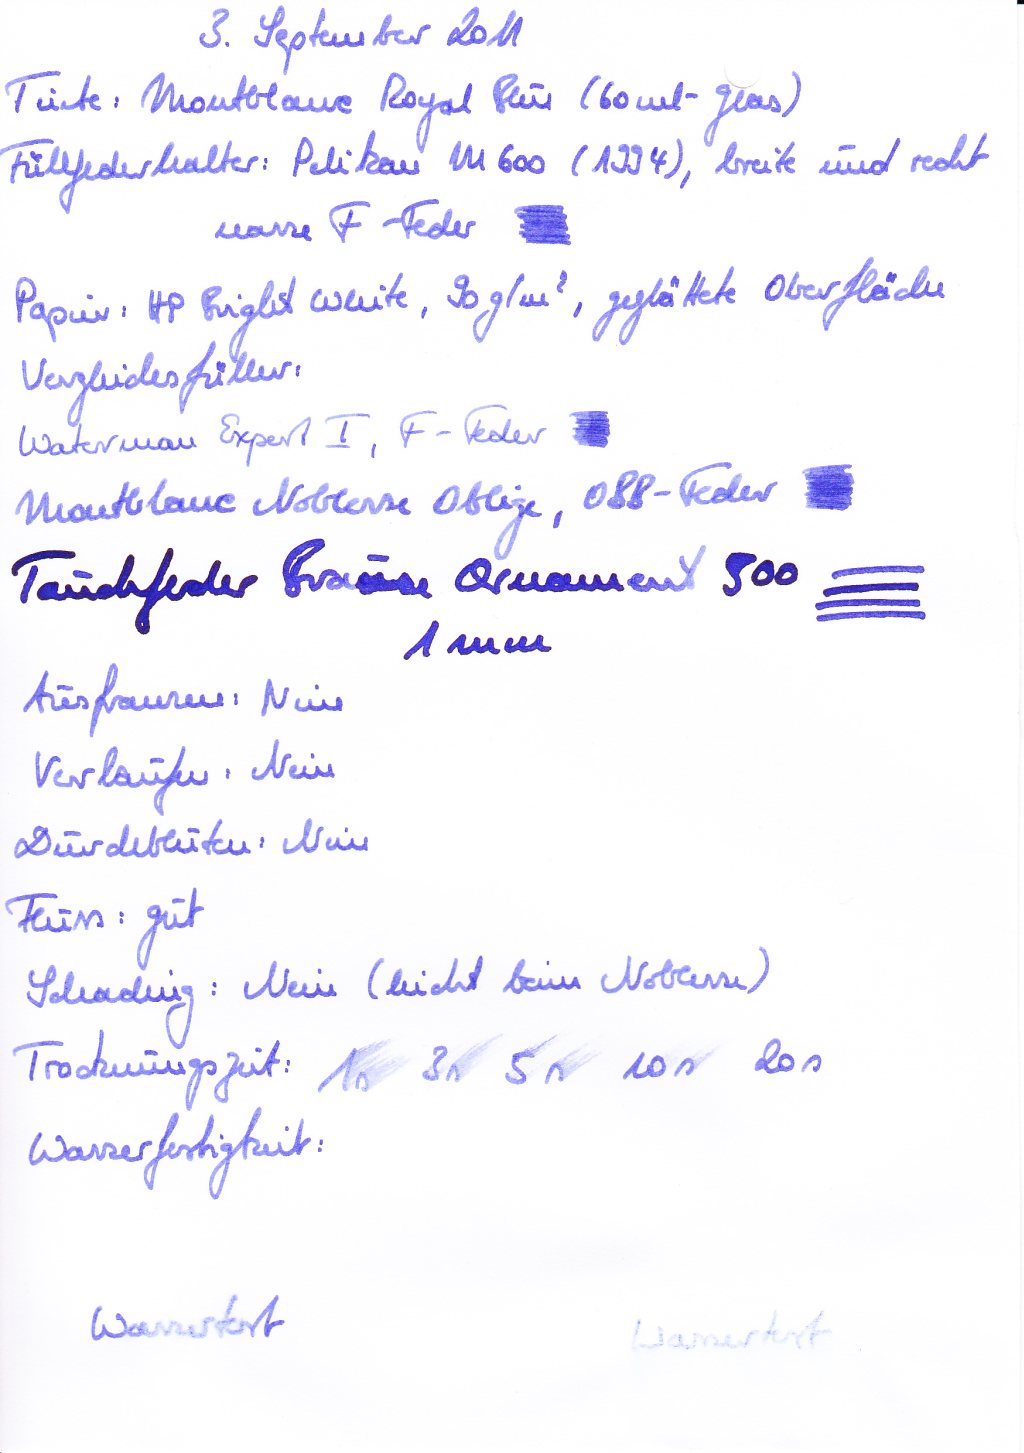 3. September 2011
Tinte: Montblanc Royal Blue (60 ml-Glas)
Füllfederhalter: Pelikan M 600 (1994), breite und recht
nasse F-Feder
Papier: HP Bright White, 90 g/m², geglättete Oberfläche
Vergleichsfüller:
Waterman Expert I, F-Feder
Montblanc Noblesse Oblige, OBB-Feder
Tauchfeder Brause Ornament 500
1 mm
Ausfransen: Nein
Verlaufen: Nein
Durchbluten: Nein
Fluss: gut
Schading: Nein (leicht beim Noblesse)
Trocknungszeit: 1s 3s 5s 10s 20s
Wasserfestigkeit:
Wassertest Wassertest